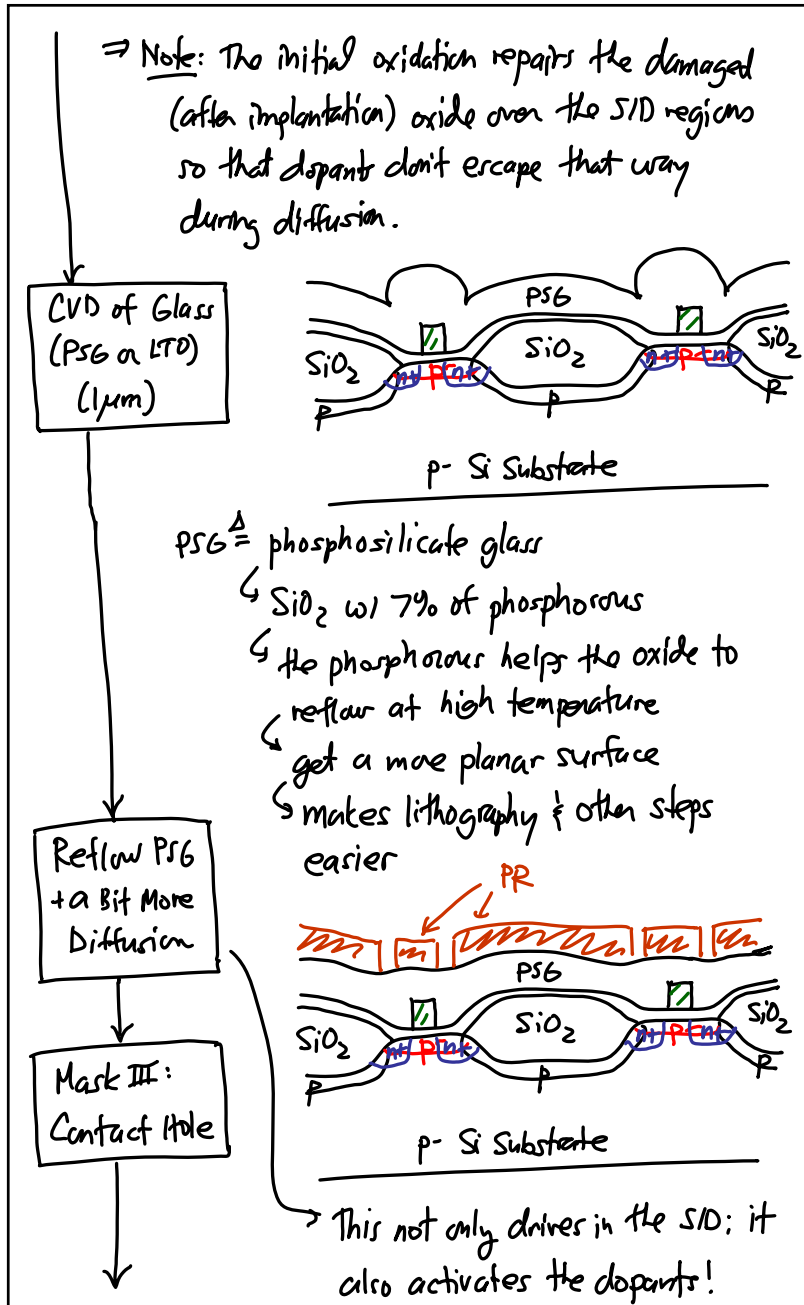 ⇒ Note: The initial oxidation repairs the damaged
(after implantation) oxide over the S/D regions
so that dopants don't escape that way
during diffusion.
CVD of Glass
(PSG or LTO)
(1μm)
PSG
SiO₂
SiO₂
SiO₂
n+ p n+
n+ p n+
p
p
p
p- Si Substrate
PSG ≜ phosphosilicate glass
↳ SiO₂ w/ 7% of phosphorous
↳ the phosphorous helps the oxide to
reflow at high temperature
↳ get a more planar surface
↳ makes lithography & other steps
easier
Reflow PSG
+ a Bit More
Diffusion
PR
PSG
SiO₂
SiO₂
SiO₂
n+ p n+
n+ p n+
p
p
p
p- Si Substrate
Mask III:
Contact Hole
→ This not only drives in the S/D; it
also activates the dopants!